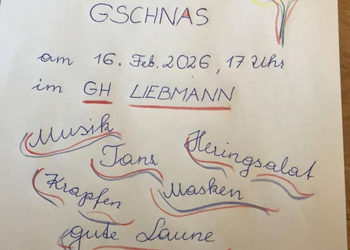 GSCHNAS
am 16. Feb. 2026, 17 Uhr
im GH LIEBMANN
Musik
Tanz
Heringsalat
Krapfen
Masken
gute Laune